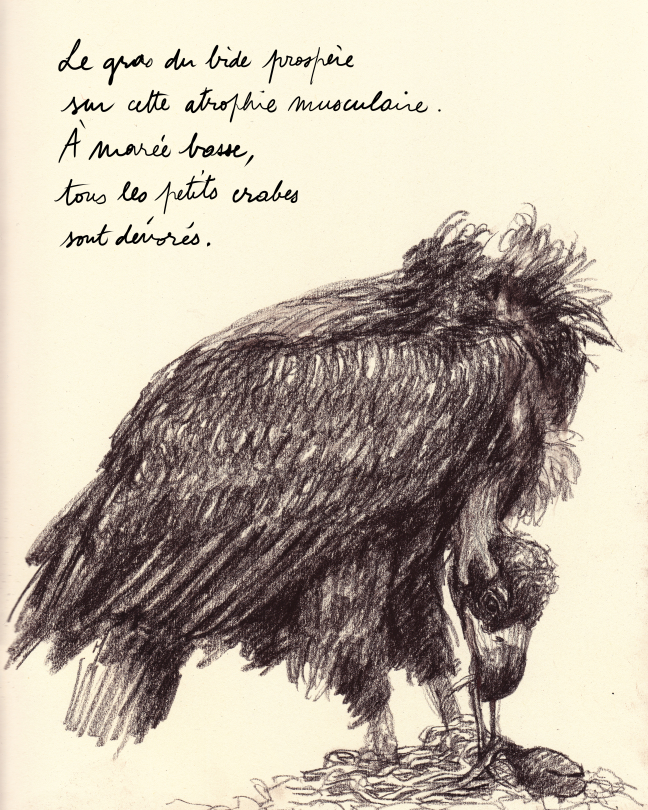 Le gras du bide prospère
sur cette atrophie musculaire.
À marée basse,
tous les petits crabes
sont dévorés.